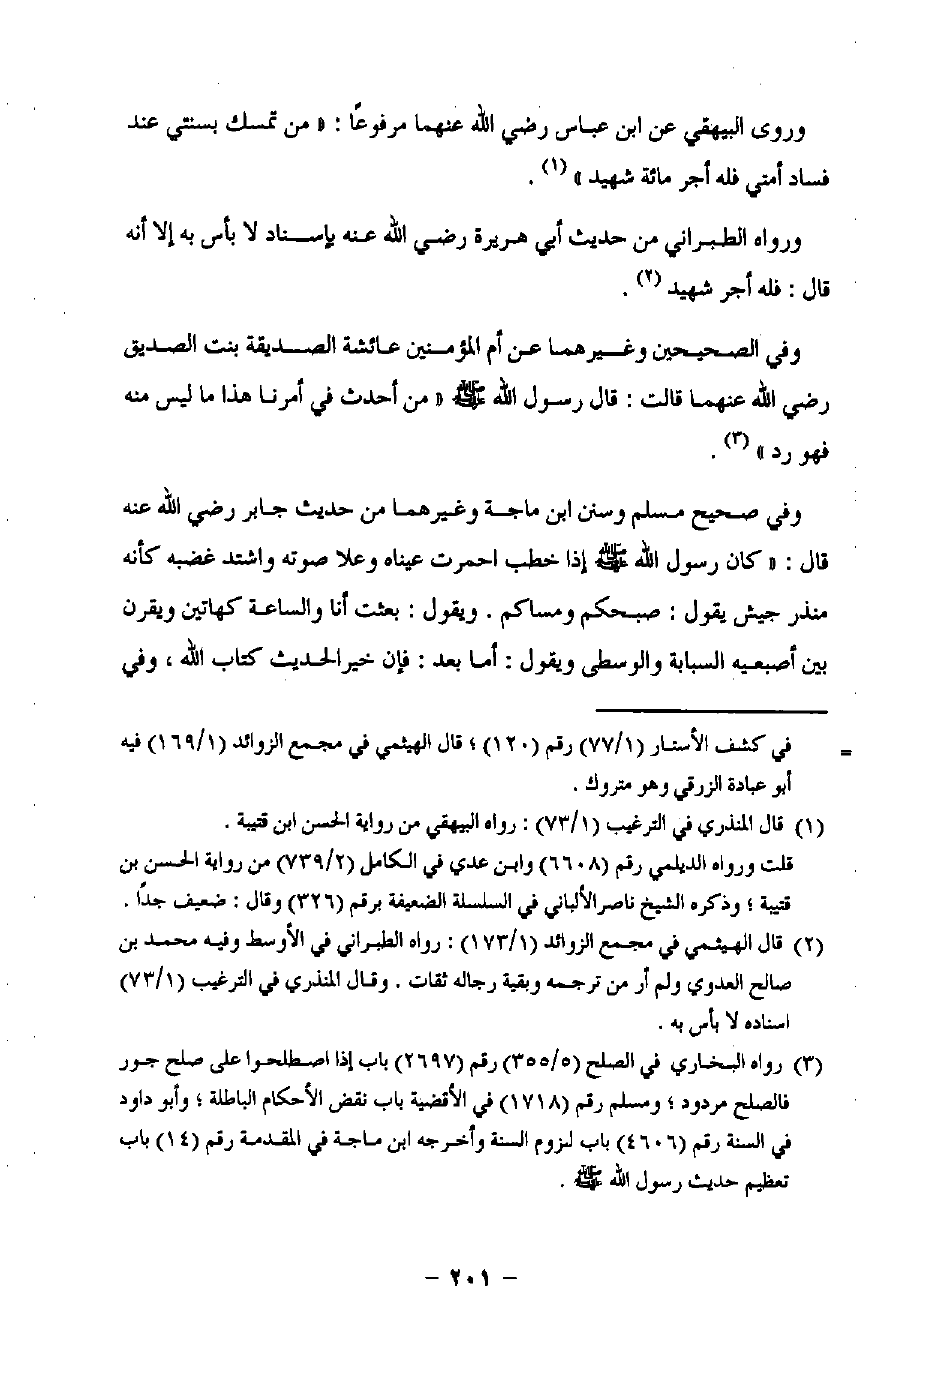 وروى البيهقي عن ابن عباس رضي الله عنهما مرفوعًا : « من تمسك بسنتي عند
فساد أمتي فله أجر مائة شهيد » (١) .
ورواه الطبراني من حديث أبي هريرة رضي الله عنه بإسناد لا بأس به إلا أنه
قال : فله أجر شهيد (٢) .
وفي الصحيحين وغيرهما عن أم المؤمنين عائشة الصديقة بنت الصديق
رضي الله عنهما قالت : قال رسول الله ﷺ « من أحدث في أمرنا هذا ما ليس منه
فهو رد » (٣) .
وفي صحيح مسلم وسنن ابن ماجة وغيرهما من حديث جابر رضي الله عنه
قال : « كان رسول الله ﷺ إذا خطب احمرت عيناه وعلا صوته واشتد غضبه كأنه
منذر جيش يقول : صبحكم ومساكم . ويقول : بعثت أنا والساعة كهاتين ويقرن
بين أصبعيه السبابة والوسطى ويقول : أما بعد : فإن خير الحديث كتاب الله ، وفي
= في كشف الأستار (٧٧/١) رقم (١٢٠) ؛ قال الهيثمي في مجمع الزوائد (١٦٩/١) فيه
أبو عبادة الزرقي وهو متروك .
(١) قال المنذري في الترغيب (٧٣/١) : رواه البيهقي من رواية الحسن ابن قتيبة .
قلت ورواه الديلمي رقم (٦٦٠٨) وابن عدي في الكامل (٧٣٩/٢) من رواية الحسن بن
قتيبة ؛ وذكره الشيخ ناصر الألباني في السلسلة الضعيفة برقم (٣٢٦) وقال : ضعيف جدًا .
(٢) قال الهيثمي في مجمع الزوائد (١٧٣/١) : رواه الطبراني في الأوسط وفيه محمد بن
صالح العدوي ولم أر من ترجمه وبقية رجاله ثقات . وقال المنذري في الترغيب (٧٣/١)
اسناده لا بأس به .
(٣) رواه البخاري في الصلح (٣٥٥/٥) رقم (٢٦٩٧) باب إذا اصطلحوا على صلح جور
فالصلح مردود ؛ ومسلم رقم (١٧١٨) في الأقضية باب نقض الأحكام الباطلة ؛ وأبو داود
في السنة رقم (٤٦٠٦) باب لزوم السنة وأخرجه ابن ماجة في المقدمة رقم (١٤) باب
تعظيم حديث رسول الله ﷺ .
– ٢٠١ –